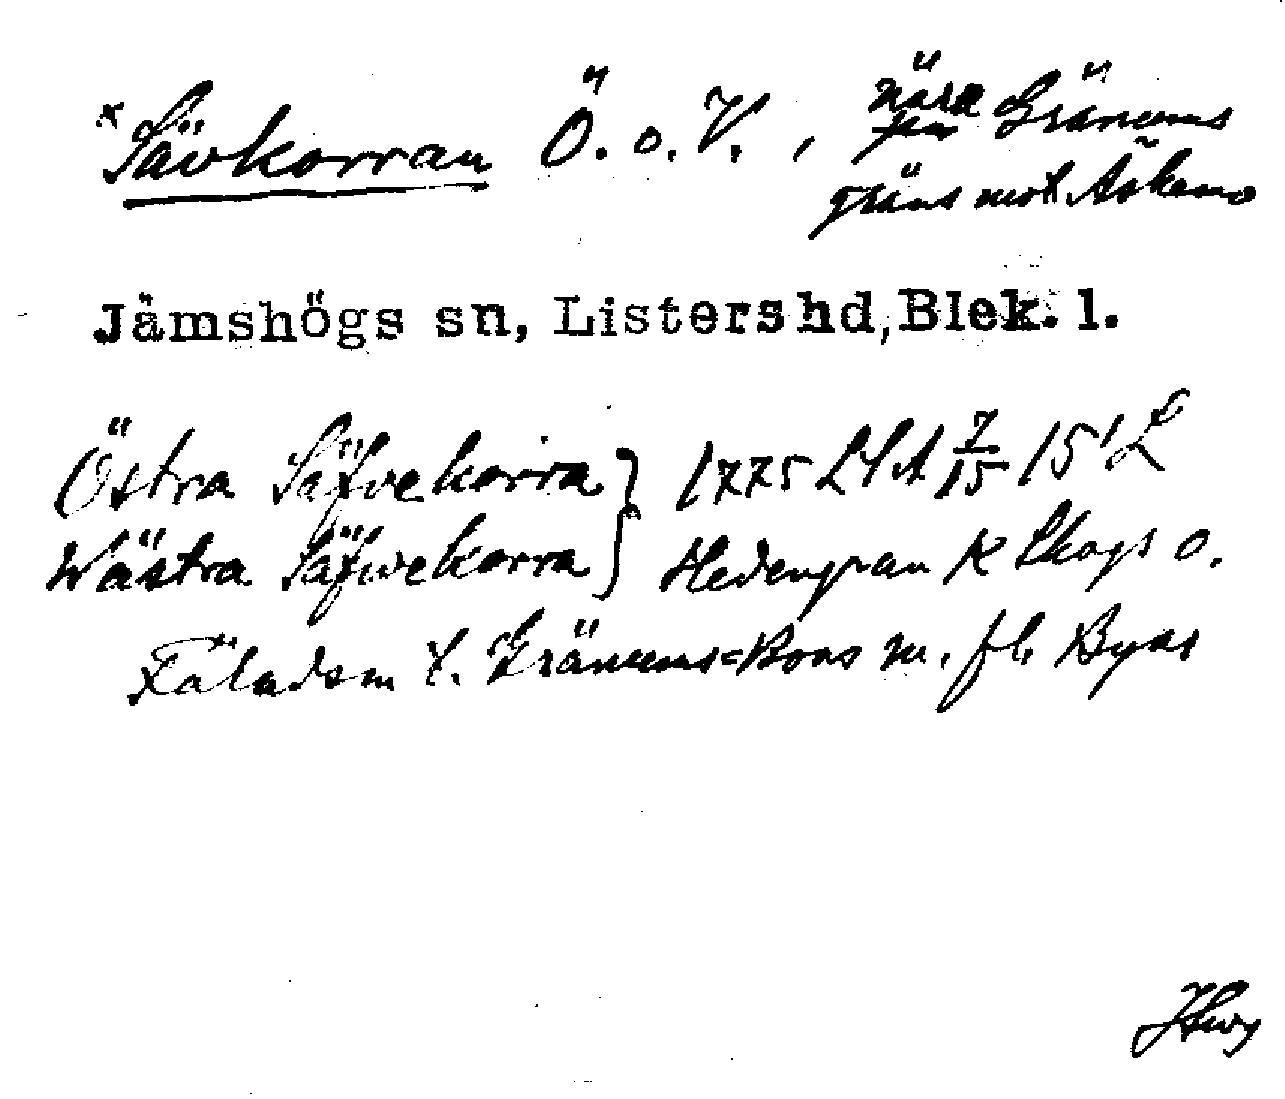 *Sävkorran Ö. o. V., nära Gränums
gräns mot Åkeno
Jämshögs sn, Listers hd, Blek. l.
Östra Säfvekorra } 1775 LSA 7/15 15'L
Wästra Säfwekorra } Hedengran K Skogs o.
Fäladsm t. Gränums=Boas m. fl. Byar